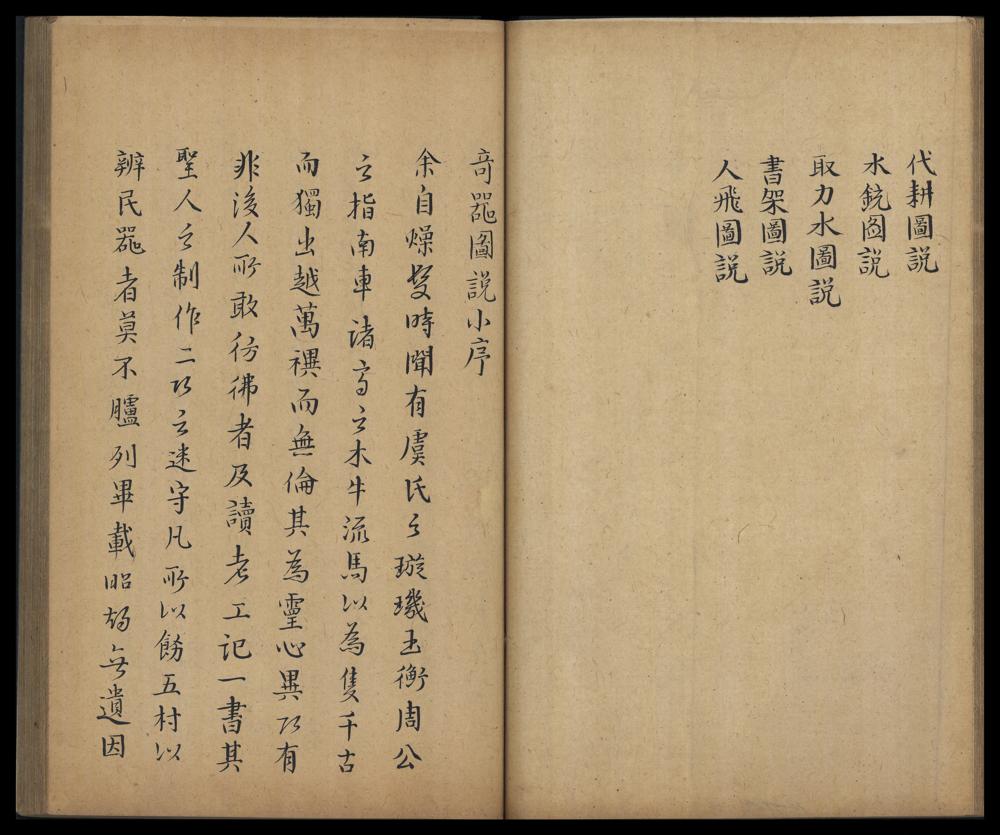 代耕圖說
水銃啚說
取力水圖說
書架圖說
人飛圖說
竒噐圖說小序
余自燥髮時聞有虞氏之璇璣玉衡周公
之指南車諸葛之木牛流馬以為隻千古
而獨出越萬禩而無倫其為靈心異巧有
非後人所敢彷彿者及讀考工記一書其
聖人之制作二巧之述守凡所以飭五材以
辨民噐者莫不臚列畢載昭
無遺因